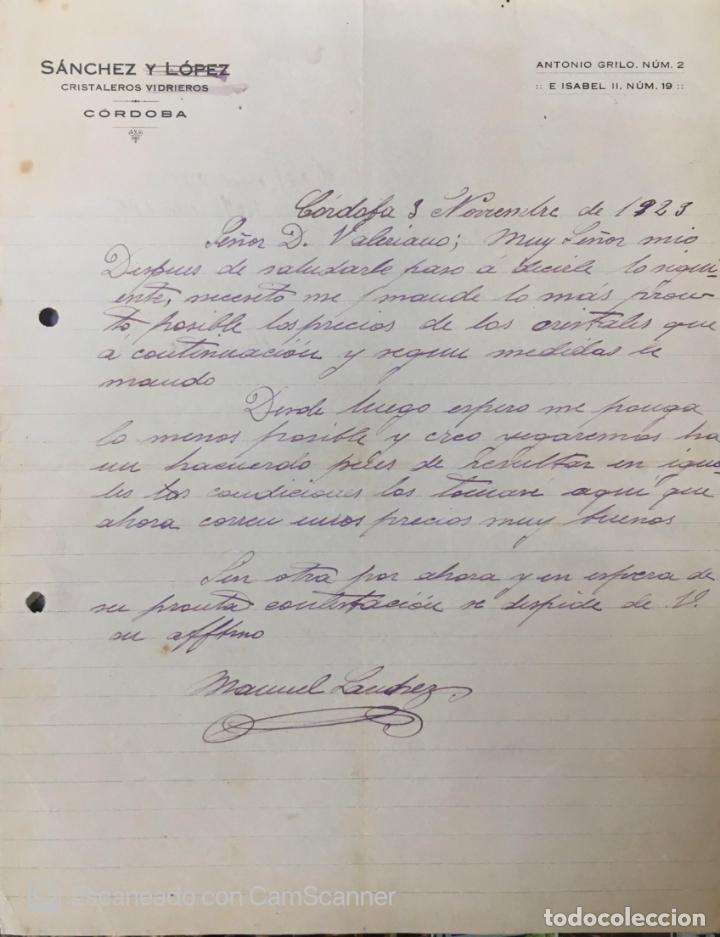 SÁNCHEZ Y LÓPEZ
CRISTALEROS VIDRIEROS
CÓRDOBA
ANTONIO GRILO. NÚM. 2
:: E ISABEL II. NÚM. 19 ::
Córdoba 3 Noviembre de 1923
Señor D. Valeriano; Muy Señor mio
Despues de saludarle paso á decirle lo sigui-
ente, necesito me mande lo más pron-
to posible los precios de los cristales que
á continuación y segun medidas le
mando
Desde luego espero me ponga
lo menos posible y creo yegaremos ha
un hacuerdo pues de resultar en igua-
les condiciones los tomaré aquí que
ahora corren unos precios muy buenos
Sin otra por ahora y en espera de
su pronta contestación se despide de V.
su affmo
Manuel Sanchez
Escaneado con CamScanner
todocoleccion